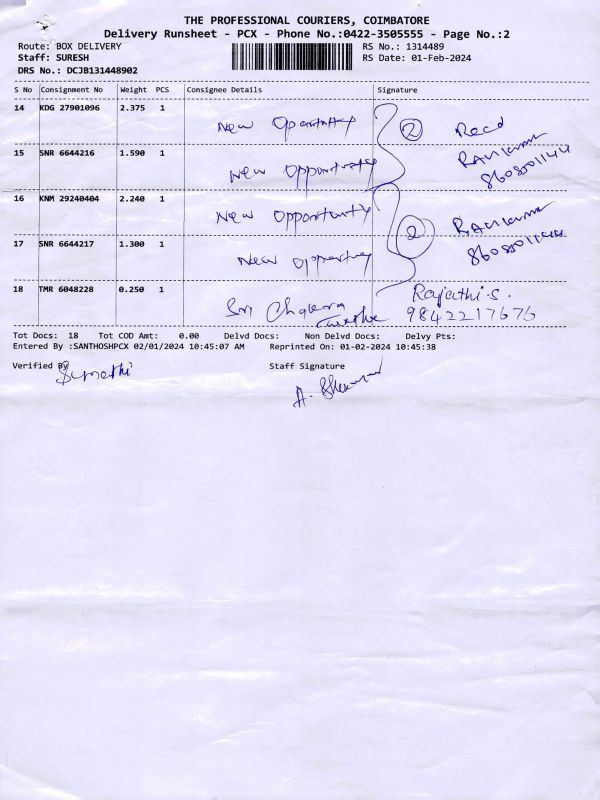 THE PROFESSIONAL COURIERS, COIMBATORE
Delivery Runsheet - PCX - Phone No.:0422-3505555 - Page No.:2
Route: BOX DELIVERY RS No.: 1314489
Staff: SURESH RS Date: 01-Feb-2024
DRS No.: DCJB131448902
S No Consignment No Weight PCS Consignee Details Signature
14 KDG 27901096 2.375 1 New Opportunity 2 Recd
15 SNR 6644216 1.590 1 New Opportunity
16 KNM 29240404 2.240 1 New Opportunity 2
17 SNR 6644217 1.300 1 New Opportunity
18 TMR 6048228 0.250 1 Sri Chakra Rajathi.S.
9842217676
Tot Docs: 18 Tot COD Amt: 0.00 Delvd Docs: Non Delvd Docs: Delvy Pts:
Entered By :SANTHOSHPCX 02/01/2024 10:45:07 AM Reprinted On: 01-02-2024 10:45:38
Verified By Staff Signature
Sumathi